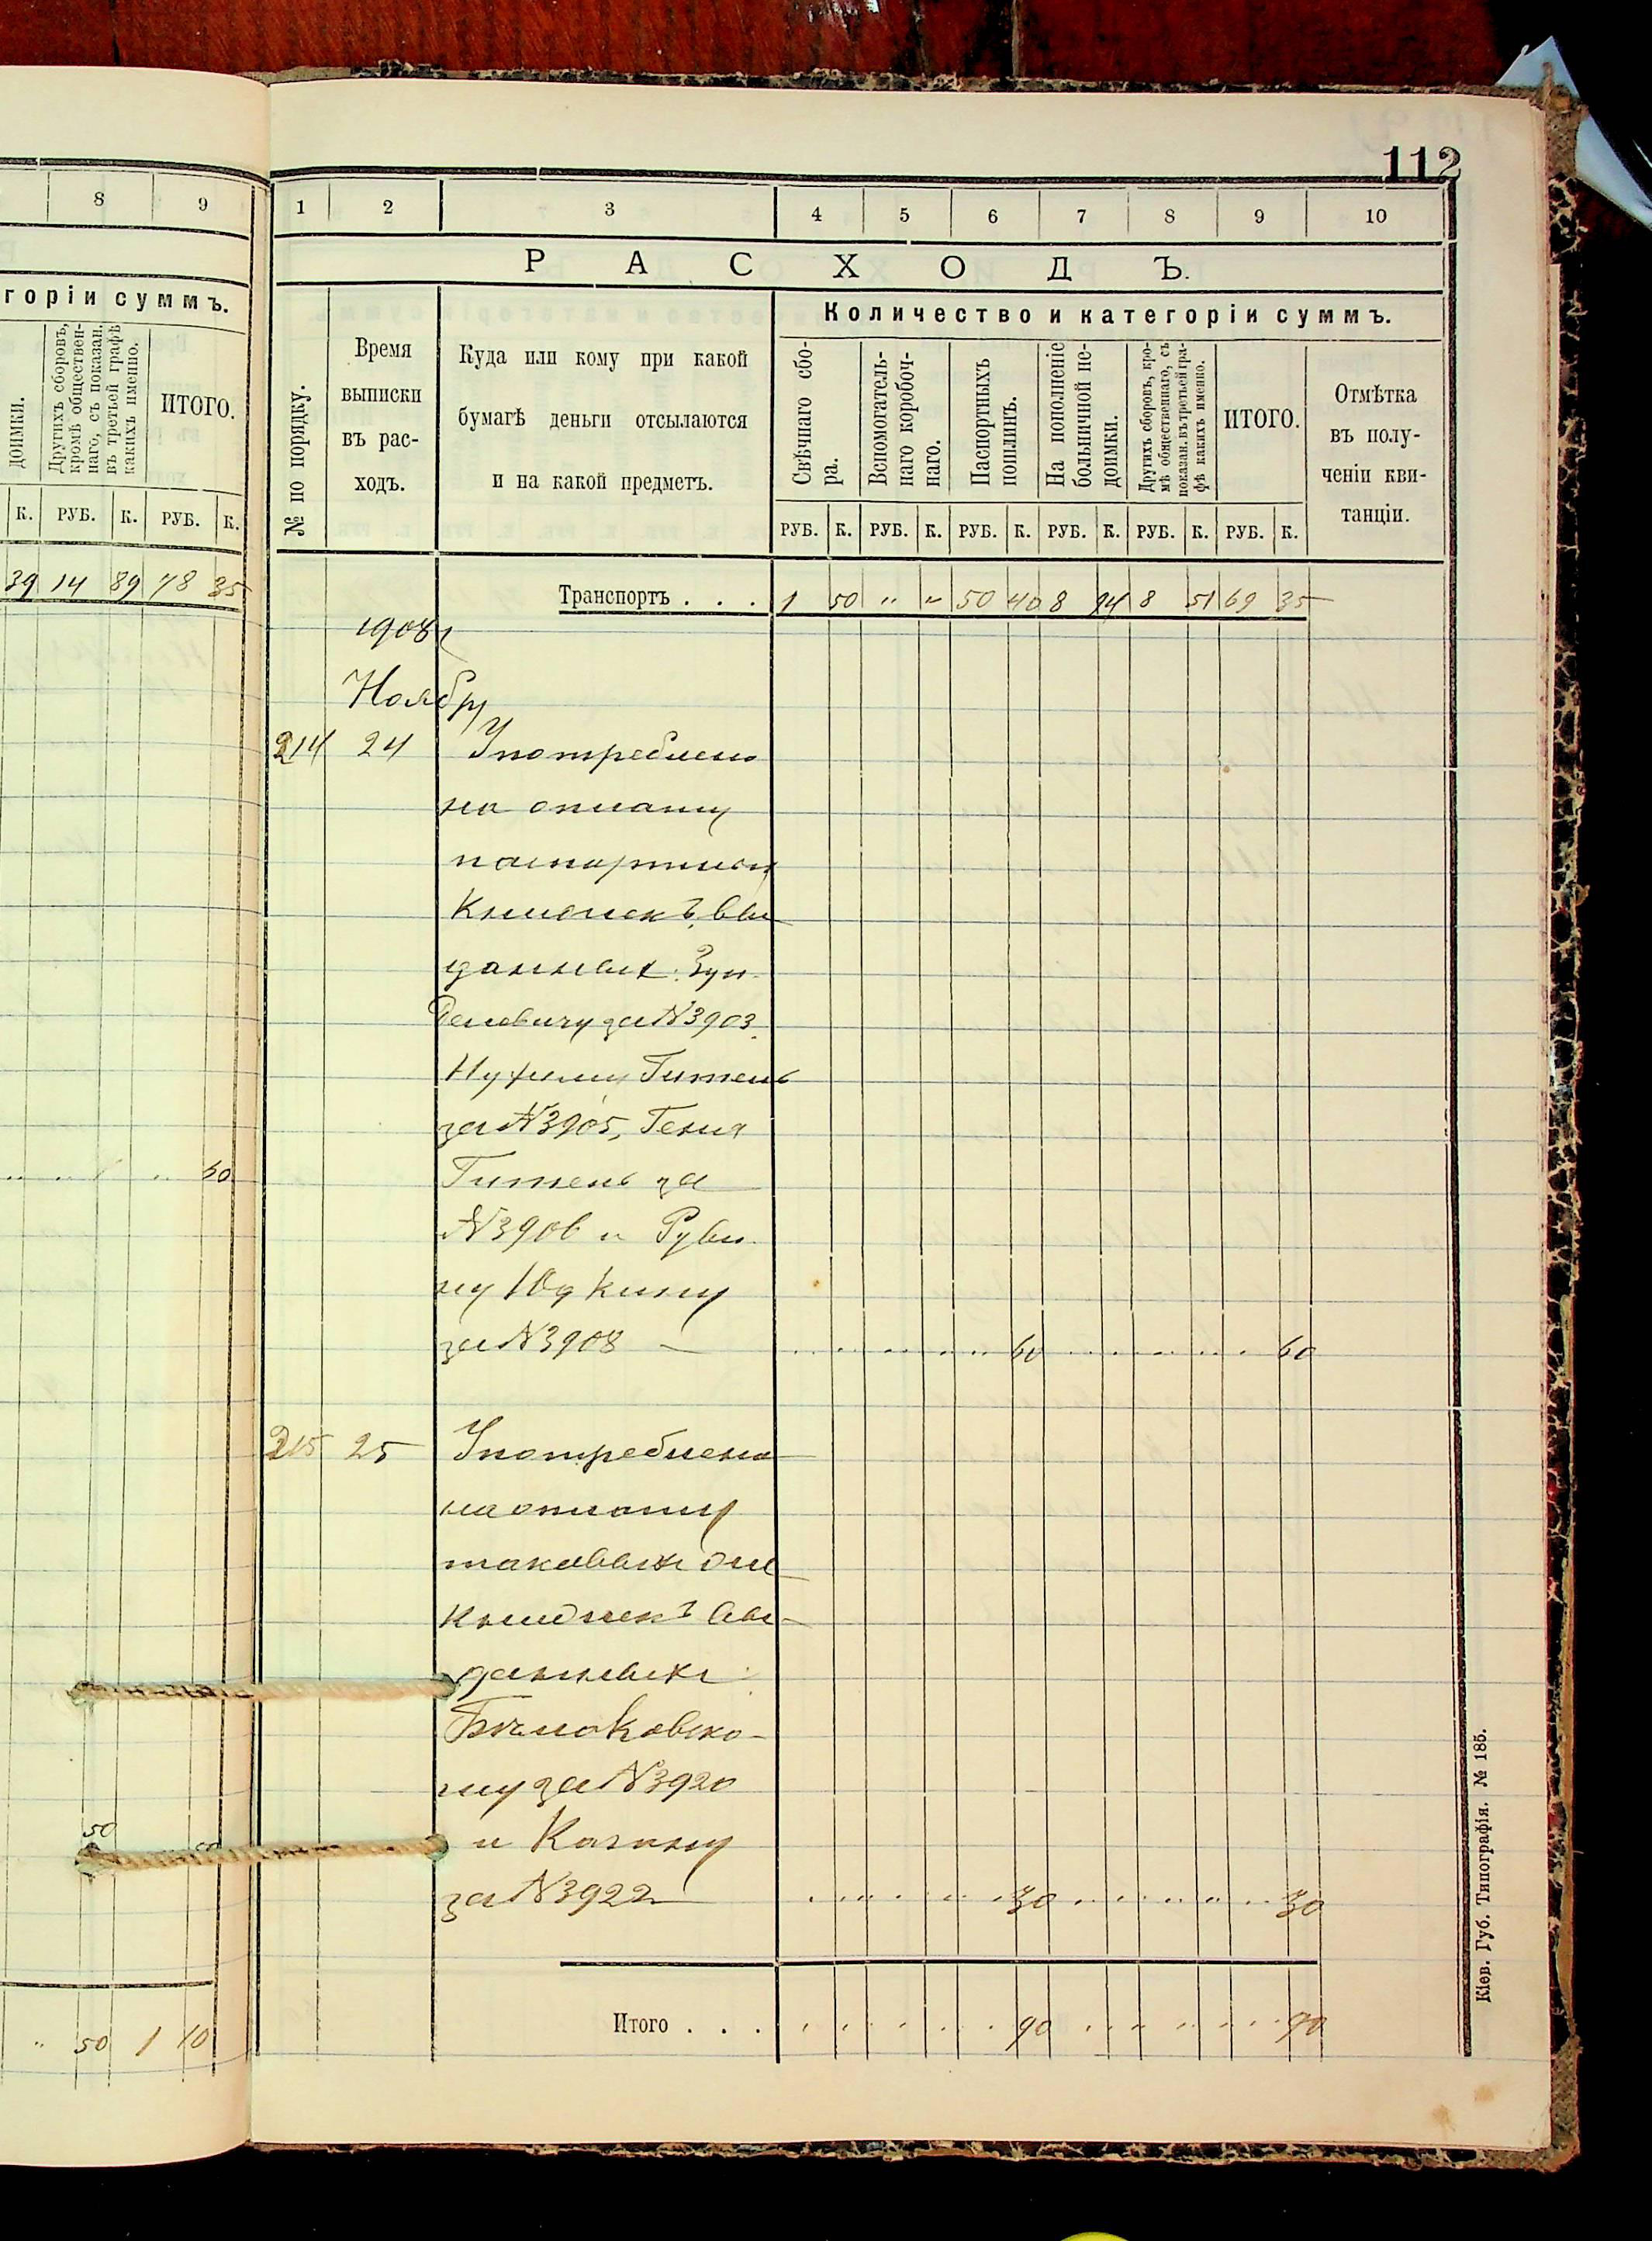 112
8 9
горіи суммъ.
доимки.
Другихъ сборовъ,
кромѣ обществен-
наго, съ показан.
въ третьей графѣ
какихъ именно.
ИТОГО.
К. РУБ. К. РУБ. К.
39 14 89 78 35
" 50 1 10
1 2 3 4 5 6 7 8 9 10
РАСХОДЪ.
№ по порядку.
Время
выписки
въ рас-
ходъ.
Куда или кому при какой
бумагѣ деньги отсылаются
и на какой предметъ.
Количество и категоріи суммъ.
Свѣчнаго сбо-
ра.
Вспомогатель-
наго коробоч-
наго.
Паспортныхъ
пошлинъ.
На пополненіе
больничной не-
доимки.
Другихъ сборовъ, кро-
мѣ общественнаго, съ
показан. въ третьей гра-
фѣ какихъ именно.
ИТОГО.
Отмѣтка
въ полу-
ченіи кви-
танціи.
РУБ. К. РУБ. К. РУБ. К. РУБ. К. РУБ. К. РУБ. К.
Транспортъ . . . 1 50 " " 50 40 8 94 8 51 69 35
1908 г
Ноябрь
214 24 Употреблено
на оплату
паспортных
Книжекъ, вы
данных: Зун
за №3903
Нухиму Гитень
за №3905, Геня
Гитень за
№3906 и Руви
ну Юдкину
за №3908 — 60 60
215 25 Употреблено
на оплату
таковых же
Книжекъ вы-
данных:
Бялоковско-
му за №3920
и Кагану
за №3922 30 30
Итого . . . 90 90
Кіев. Губ. Типографія. № 185.